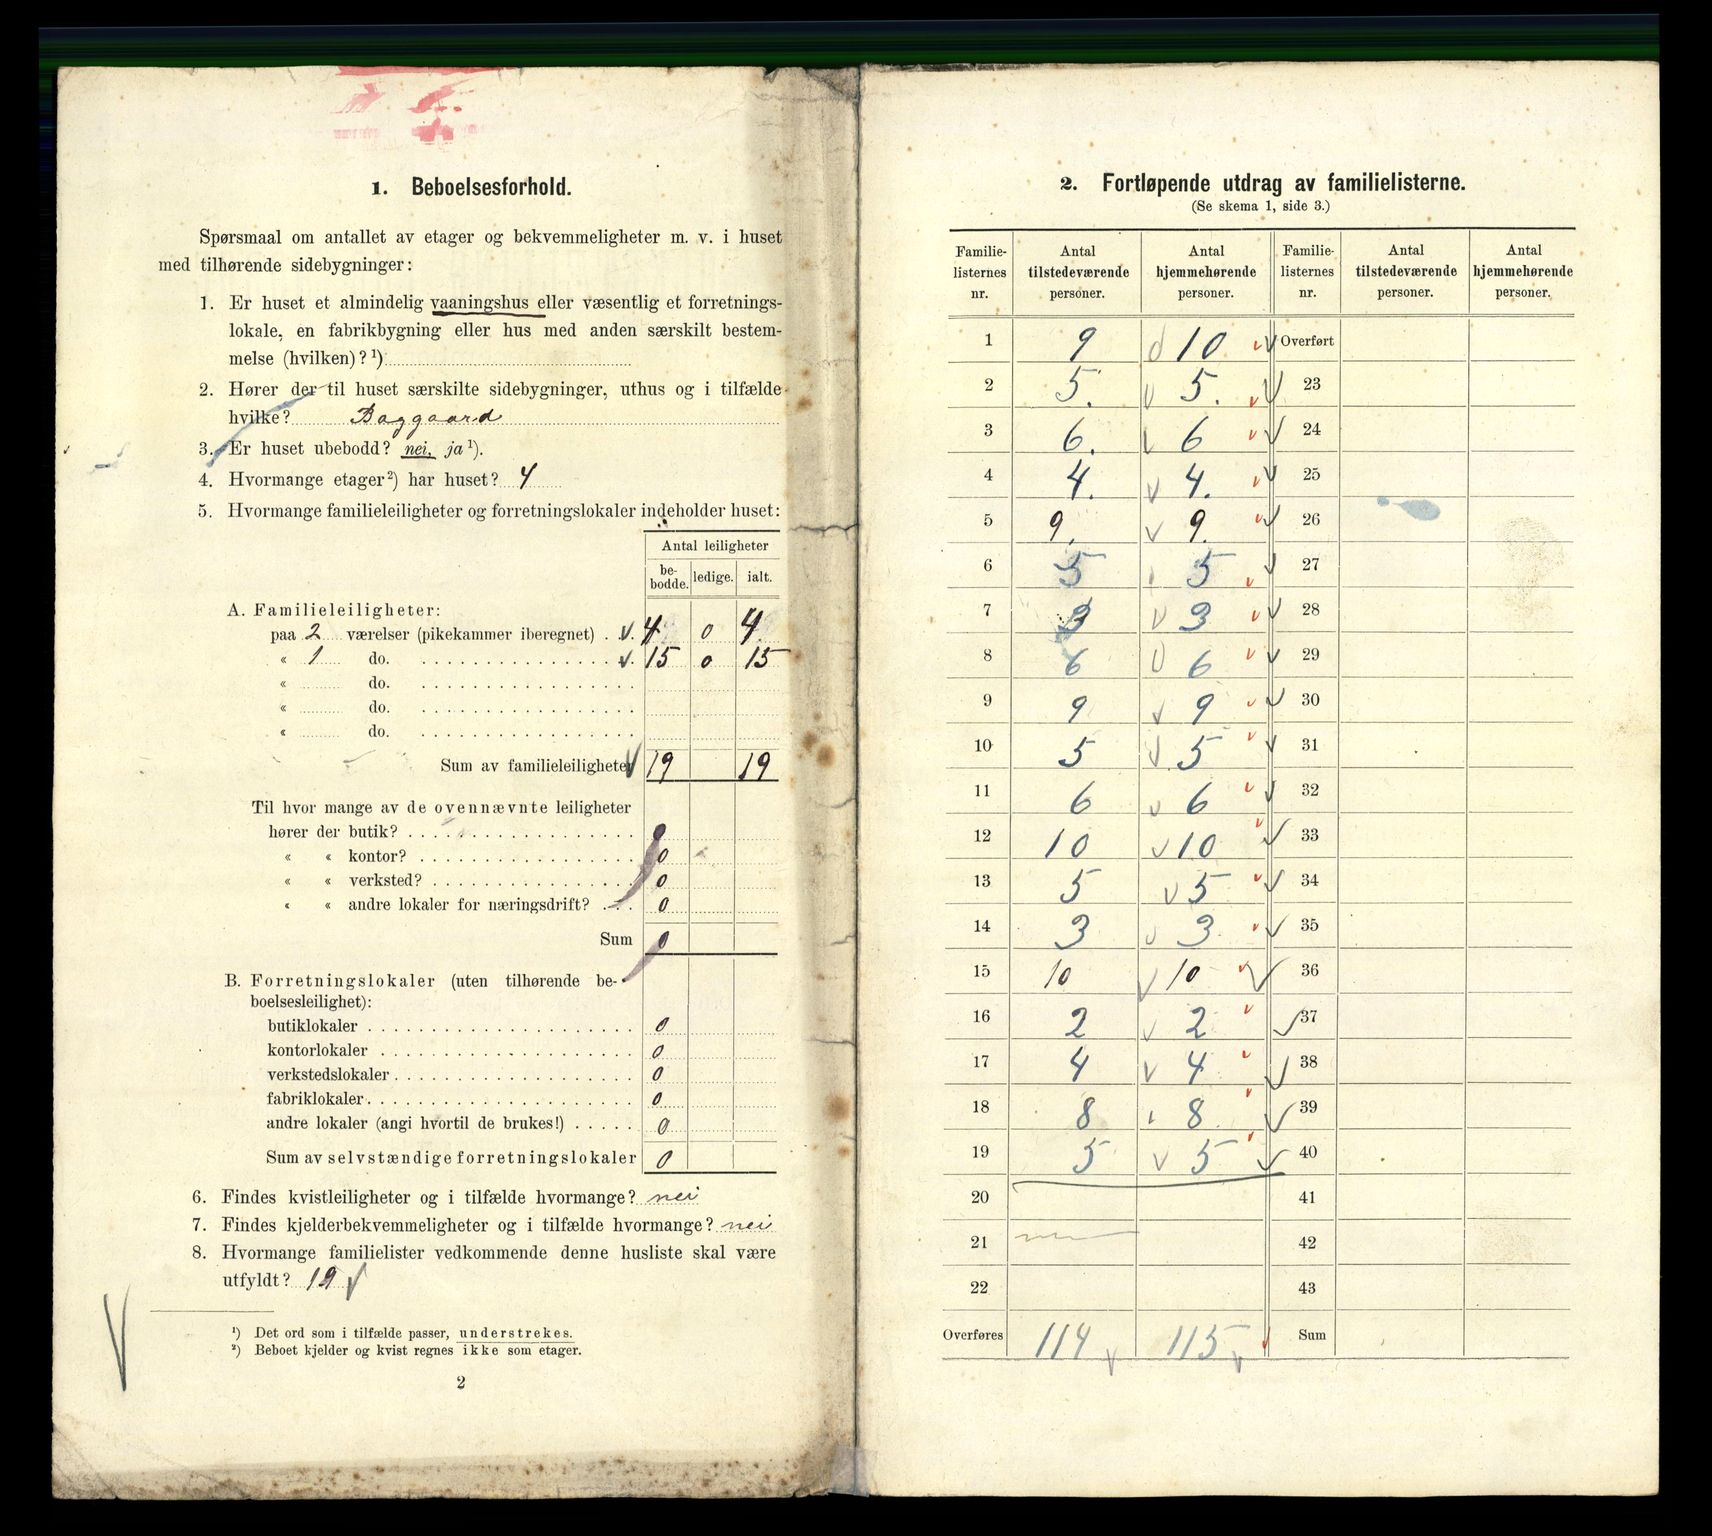 1. Beboelsesforhold.
Spørsmaal om antallet av etager og bekvemmeligheter m. v. i huset
med tilhørende sidebygninger:
1. Er huset et almindelig vaaningshus eller væsentlig et forretnings-
lokale, en fabrikbygning eller hus med anden særskilt bestem-
melse (hvilken)? ¹)
2. Hører der til huset særskilte sidebygninger, uthus og i tilfælde
hvilke? Baggaard
3. Er huset ubebodd? nei, ja ¹).
4. Hvormange etager ²) har huset? 4
5. Hvormange familieleiligheter og forretningslokaler indeholder huset:
Antal leiligheter
be-
bodde. ledige. ialt.
A. Familieleiligheter:
paa 2 værelser (pikekammer iberegnet) . . 4 0 4
« 1 do. 15 0 15
« do.
« do.
« do.
Sum av familieleiligheter 19 19
Til hvor mange av de ovennævnte leiligheter
hører der butik? 0
« « kontor? 0
« « verksted? 0
« « andre lokaler for næringsdrift? 0
Sum 0
B. Forretningslokaler (uten tilhørende be-
boelsesleilighet):
butiklokaler 0
kontorlokaler 0
verkstedslokaler 0
fabriklokaler 0
andre lokaler (angi hvortil de brukes!) 0
Sum av selvstændige forretningslokaler 0
6. Findes kvistleiligheter og i tilfælde hvormange? nei
7. Findes kjelderbekvemmeligheter og i tilfælde hvormange? nei
8. Hvormange familielister vedkommende denne husliste skal være
utfyldt? 19
¹) Det ord som i tilfælde passer, understrekes.
²) Beboet kjelder og kvist regnes ikke som etager.
2
2. Fortløpende utdrag av familielisterne.
(Se skema 1, side 3.)
Familie-listernes nr. Antal tilstedeværende personer. Antal hjemmehørende personer. Familie-listernes nr. Antal tilstedeværende personer. Antal hjemmehørende personer.
1 9 10 Overført
2 5. 5. 23
3 6. 6 24
4 4. 4. 25
5 9. 9. 26
6 5 5 27
7 3 3 28
8 6 6 29
9 9 9 30
10 5 5 31
11 6 6 32
12 10 10 33
13 5 5 34
14 3 3 35
15 10 10 36
16 2 2 37
17 4 4 38
18 8 8 39
19 5 5 40
20 41
21 42
22 43
Overføres 114 115 Sum